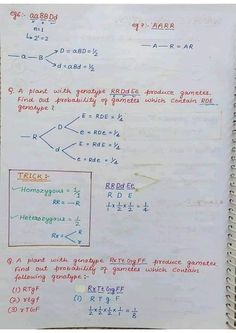 eg6:- aaBBDd
n=1
→ 2¹=2
— a — B
D = aBD = ½
d = aBd = ½
eg7:- AABR
— A — R = AR
Q. A plant with genotype RRDdEe produce gametes.
Find out probability of gametes which contain RDE
genotype?
— R
D
E = RDE = ¼
e = RDe = ¼
d
E = RdE = ¼
e = rde = ¼
TRICK:-
✓ Homozygous = 1/1
RR — R
✓ Heterozygous = 1/2
Rr
R
r
RRDdEe
R D E
1/1 x 1/2 x 1/2 = 1/4
Q. A plant with genotype RrTtGgFF produce gametes
find out probability of gametes which contain
following genotype:-
(1) RTgF
(2) rtgf
(3) rTGF
RrTtGgFF
(1) R T g F
½ x ½ x ½ x 1 = 1/8